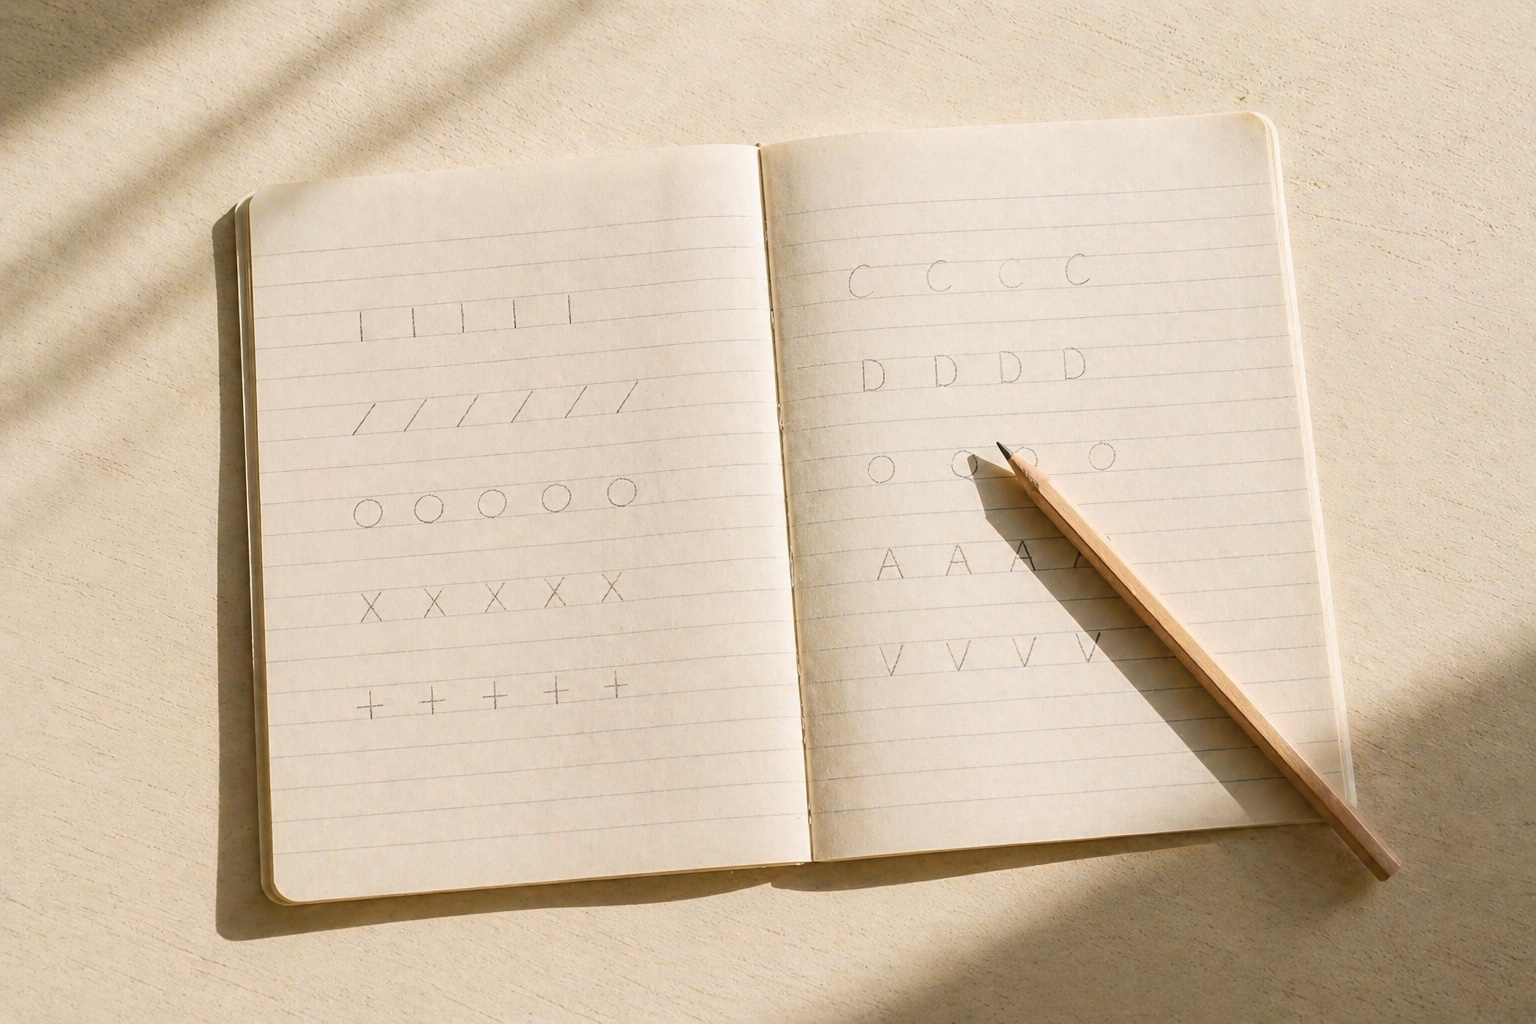 | | | | |
/ / / / / /
O O O O O
X X X X X
+ + + + +
C C C C
D D D D
O O O O
A A A A
V V V V